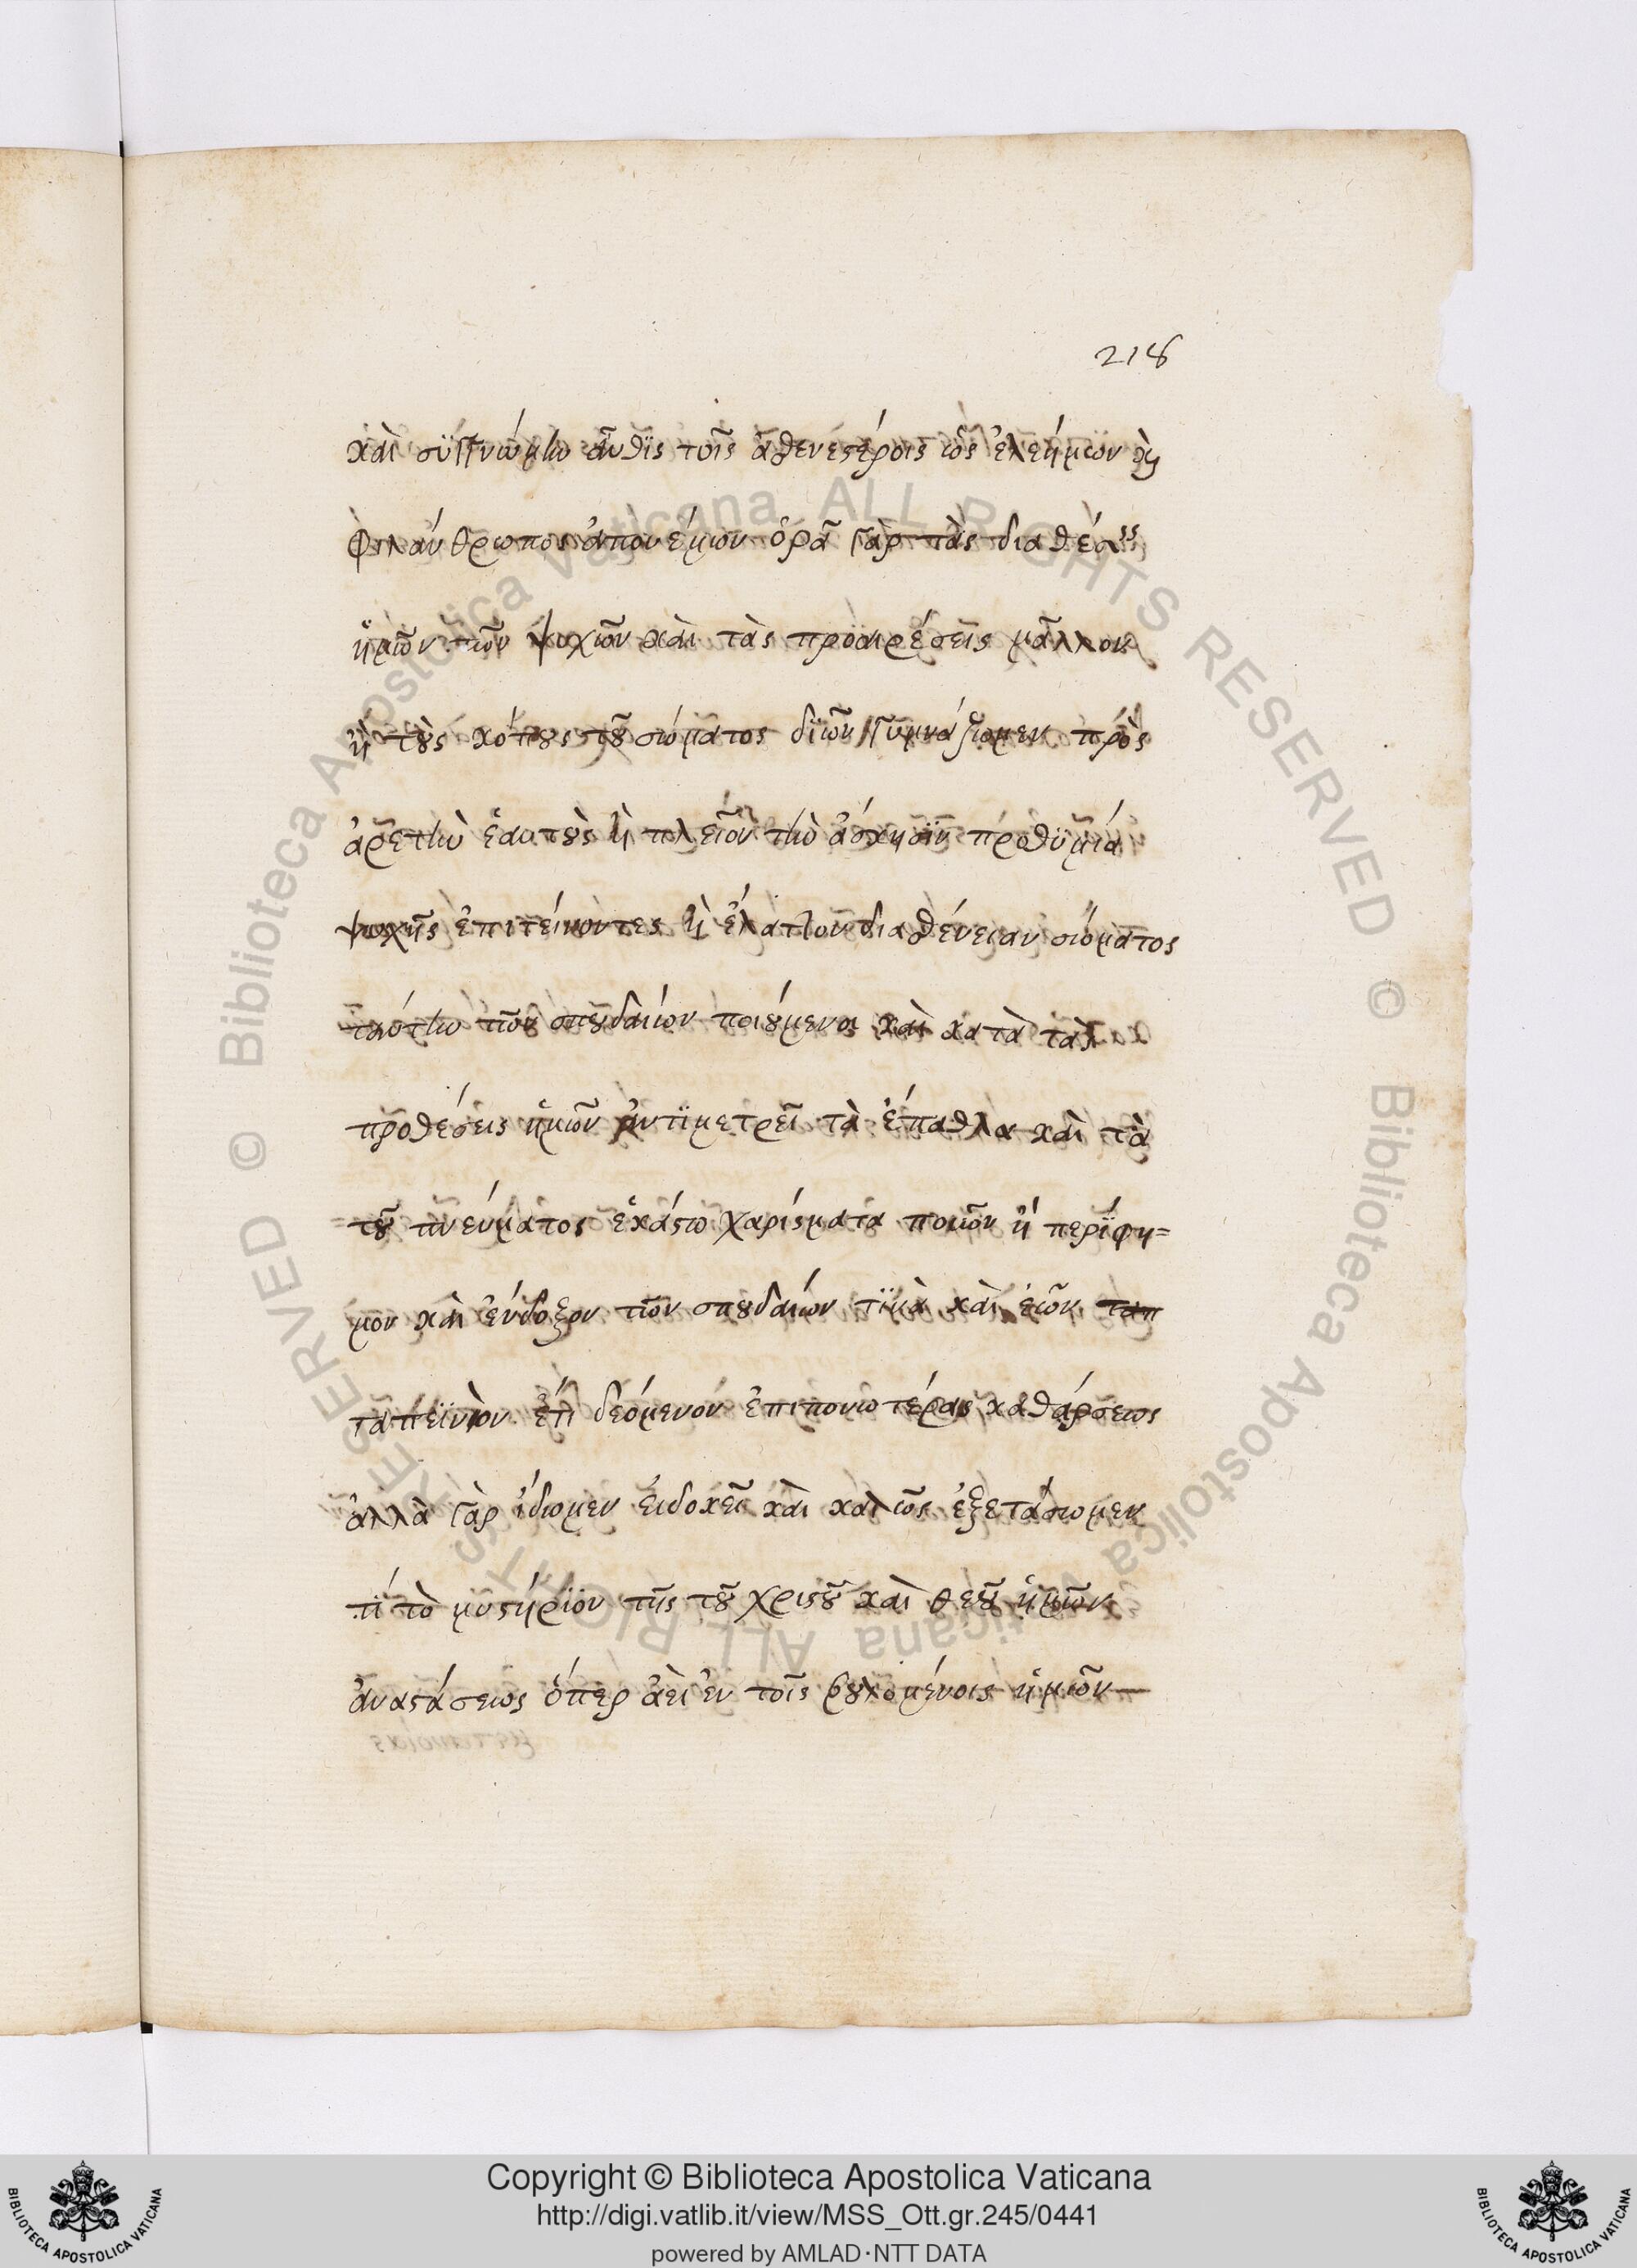 218
καὶ συγγνώμην αὖθις τοῖς ἀσθενεστέροις ὡς ἐλεήμων καὶ
φιλάνθρωπος ἀπονέμων ὁρᾶ γὰρ τὰς διαθέσεις
ἡμῶν τῶν ψυχῶν καὶ τὰς προαιρέσεις μᾶλλον
ἢ τοὺς κόπους τοῦ σώματος δι ὧν γυμνάζωμεν πρὸς
ἀρετὴν ἑαυτοὺς ἢ πλεῖον τὴν ἄσκησιν προθυμία
ψυχῆς ἐπιτείνοντες ἢ ἔλαττον δι ἀσθένειαν σώματος
ταύτην τῶν σπουδαίων ποιούμενοι καὶ κατὰ τὰς
προθέσεις ἡμῶν ἀντιμετρεῖ τὰ ἔπαθλα καὶ τὰ
τοῦ πνεύματος ἑκάστω χαρίσματα ποιῶν ἢ περίφη=
μον καὶ ἔνδοξον τῶν σπουδαίων τινὰ καὶ ἐῶν ταπ
ταπεινὸν ἔτι δεόμενον ἐπιπονωτέρας καθάρσεως
ἀλλὰ γὰρ ἴδωμεν εἰ δοκεῖ καὶ καλῶς ἐξετάσωμεν
τί τὸ μυστήριον τῆς τοῦ χριστοῦ καὶ θεοῦ ἡμῶν
ἀναστάσεως ὅπερ ἀεὶ ἐν τοῖς βουλομένοις ἡμῶν
Copyright © Biblioteca Apostolica Vaticana
http://digi.vatlib.it/view/MSS_Ott.gr.245/0441
powered by AMLAD·NTT DATA